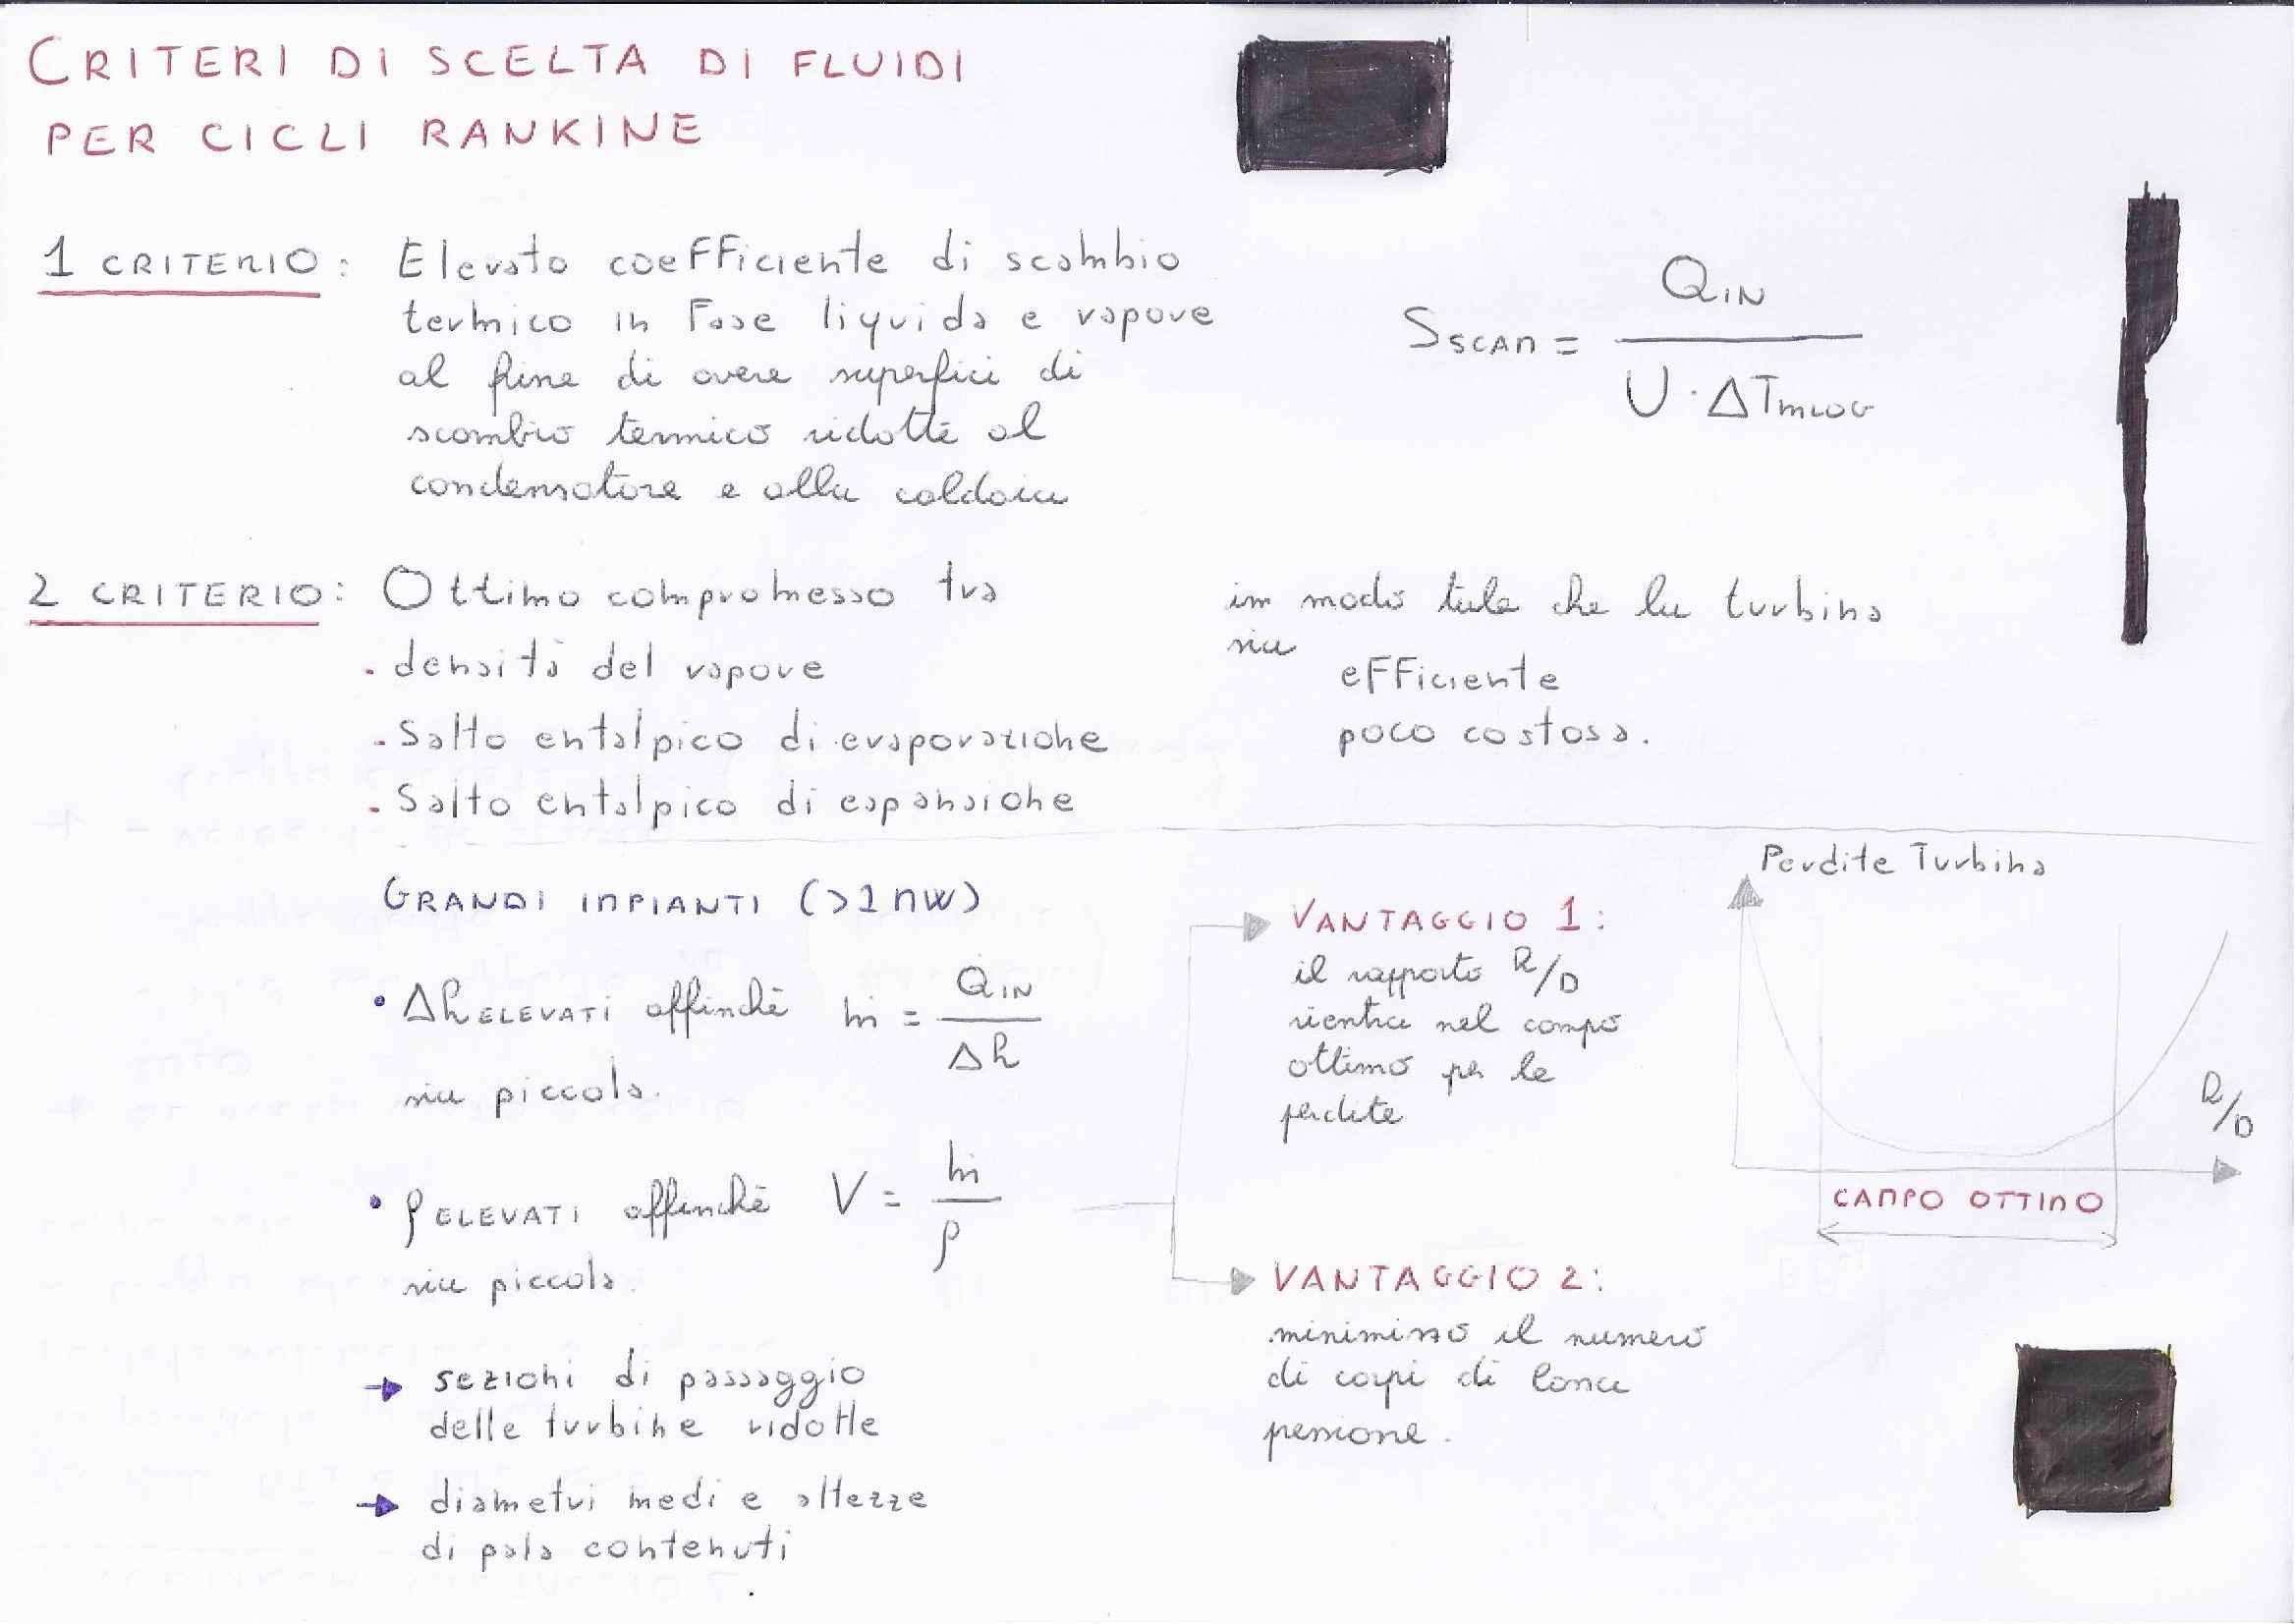 CRITERI DI SCELTA DI FLUIDI
PER CICLI RANKINE
1 CRITERIO: Elevato coefficiente di scambio
termico in fase liquida e vapore
al fine di avere superfici di
scambio termico ridotte al
condensatore e alla caldaia
S SCAM = Q IN / U · ΔT mLOG
2 CRITERIO: Ottimo compromesso tra
. densità del vapore
- Salto entalpico di evaporazione
. Salto entalpico di espansione
in modo tale che la turbina
sia
efficiente
poco costosa.
GRANDI IMPIANTI (>1MW)
• Δh ELEVATI affinchè ṁ = Q IN / Δh
sia piccola.
• ρ ELEVATI affinchè V = ṁ / ρ
sia piccola.
→ sezioni di passaggio
delle turbine ridotte
→ diametri medi e altezze
di pala contenuti
VANTAGGIO 1:
il rapporto R/D
rientra nel campo
ottimo per le
perdite
VANTAGGIO 2:
minimizzo il numero
di corpi di bassa
pressione.
Perdite Turbina
R/D
CAMPO OTTIMO